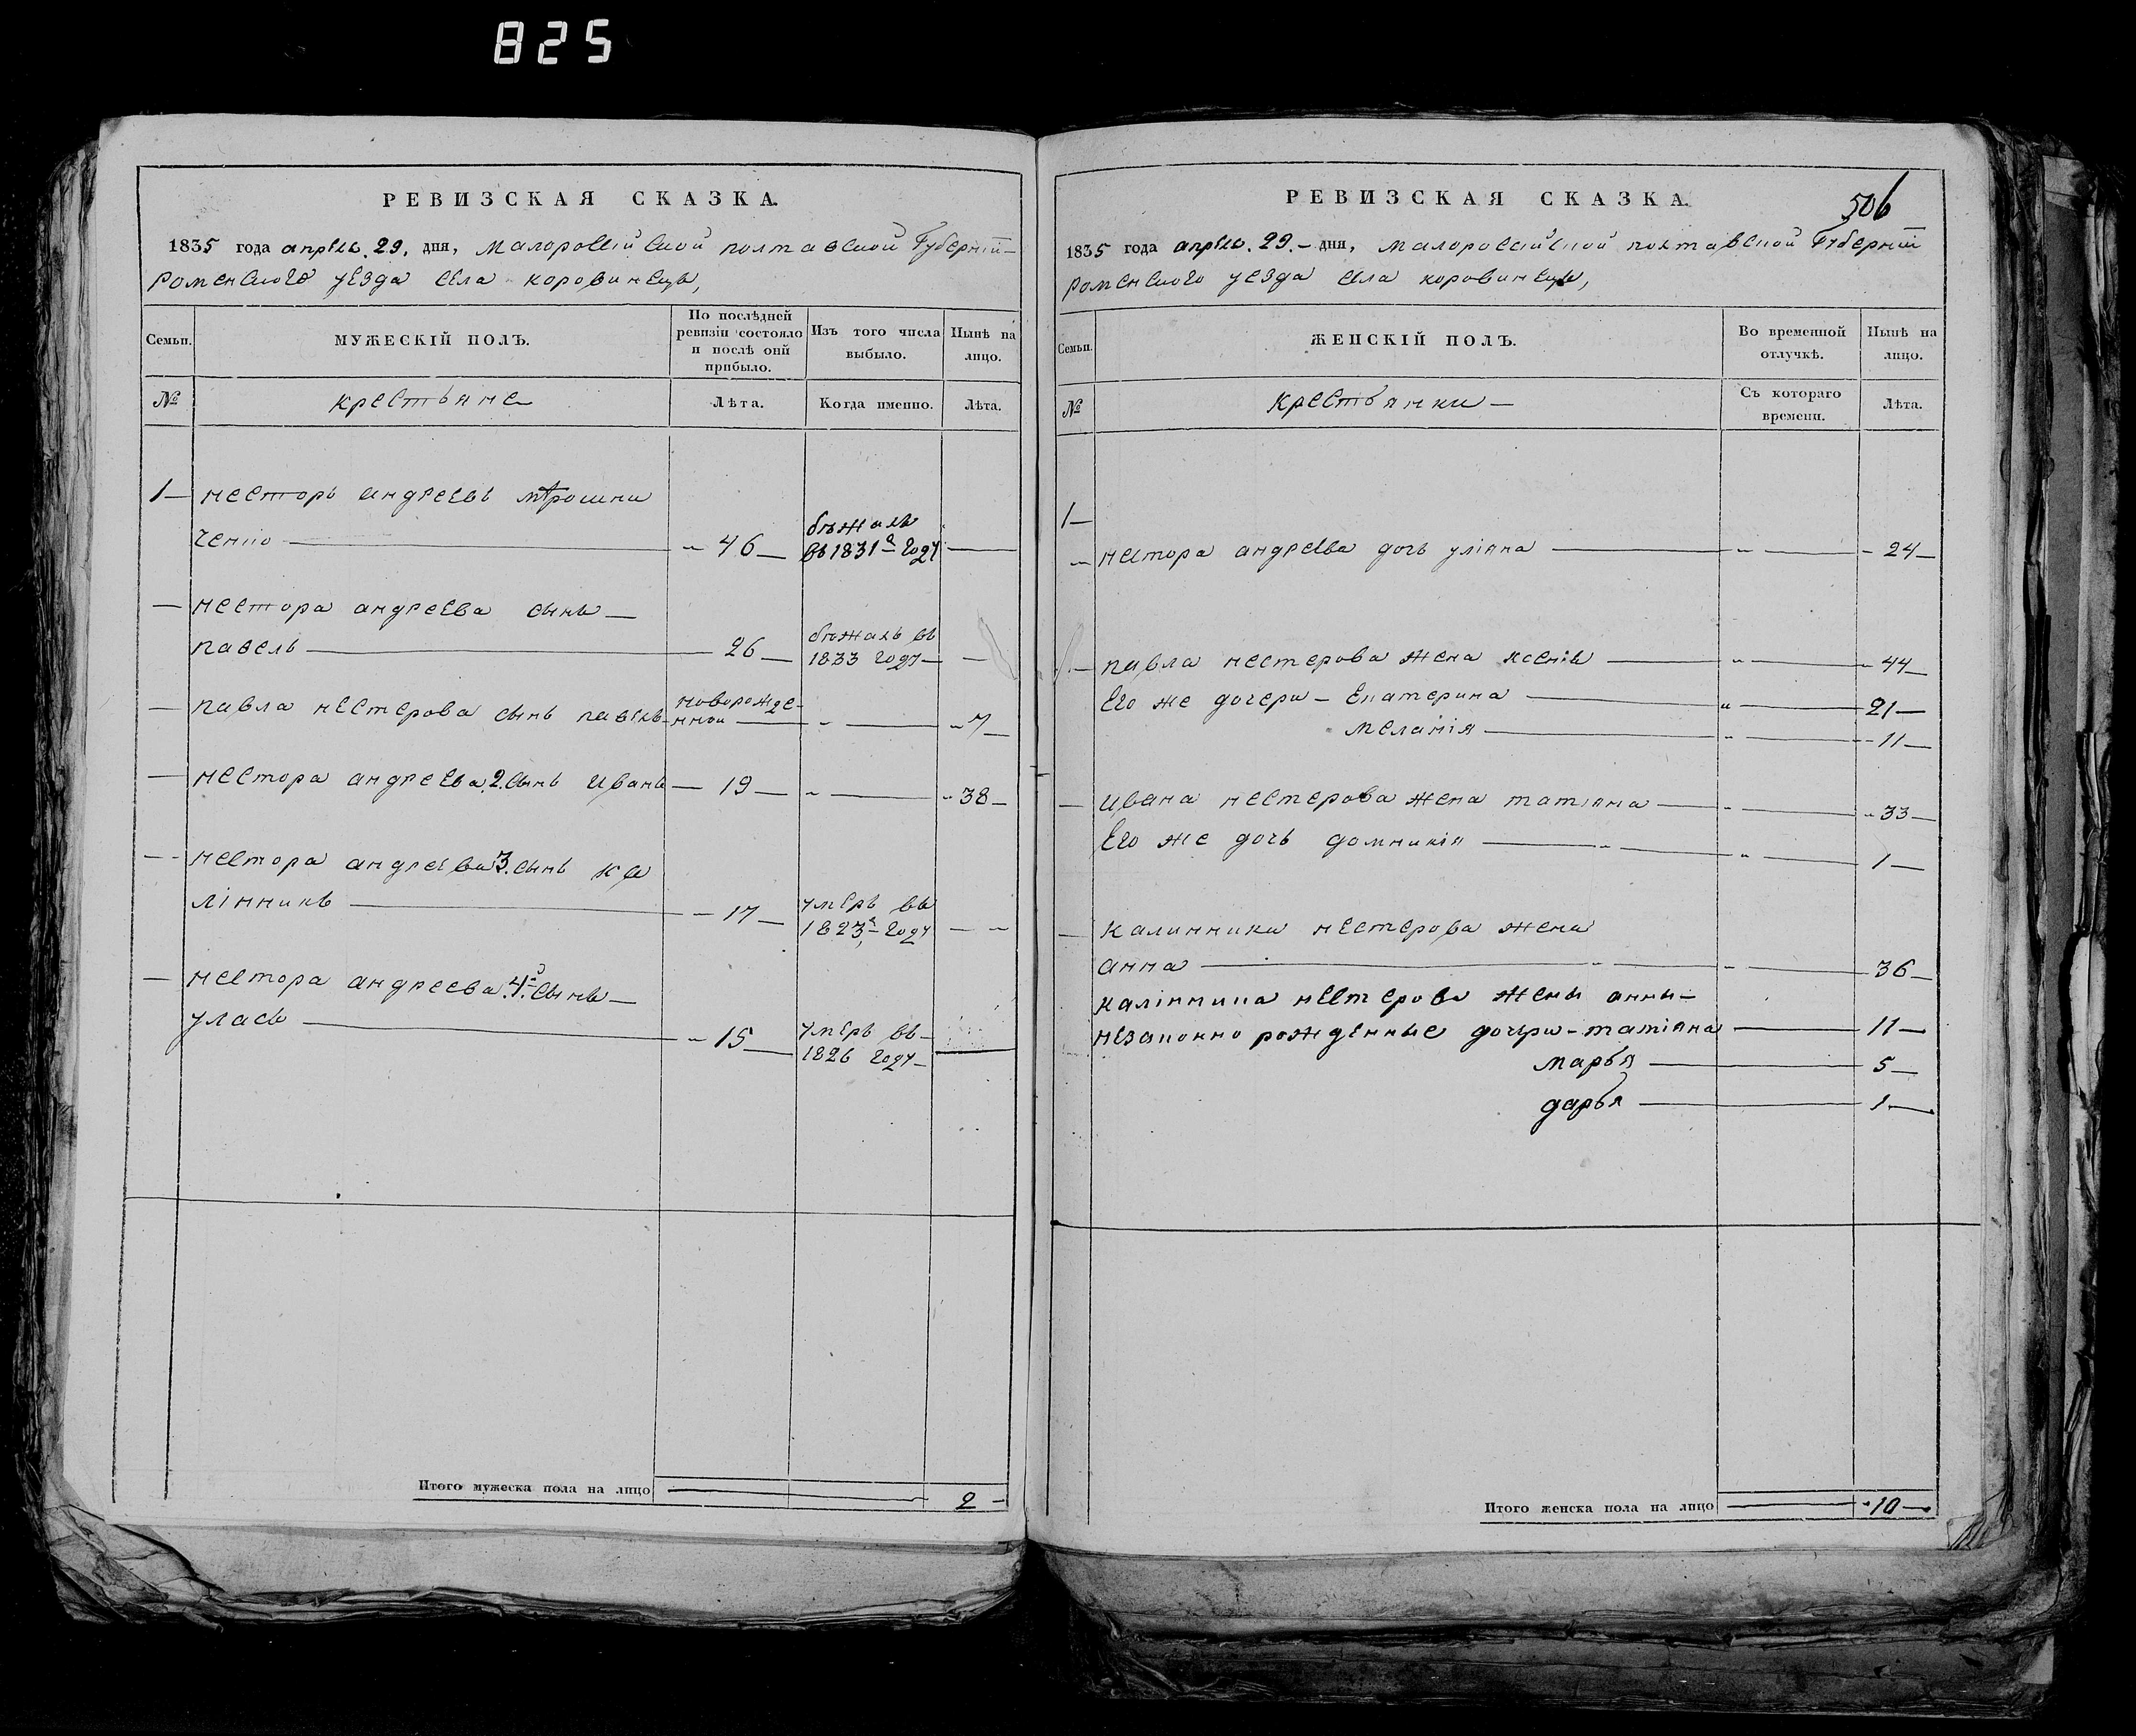 825
РЕВИЗСКАЯ СКАЗКА.
1835 года апреля. 29. дня, малоросійской полтавской Губерній
роменского уезда села коровинецъ,
Семьи.
МУЖЕСКІЙ ПОЛЪ.
По послѣдней ревизіи состояло и послѣ оній прибыло.
Изъ того числа выбыло.
Нынѣ на лицо.
№
крестьяне
Лѣта.
Когда именно.
Лѣта.
1 несторъ андреевъ мѣрошни
ченко 46 бѣжалъ въ 1831 году
нестора андреева сынъ
павелъ 26 бѣжалъ въ 1833 году
павла нестерова сынъ павелъ новорожденной 7
нестора андреева 2. сынъ иванъ 19 38
нестора андреева 3. сынъ ка
лінникъ 17 умеръ въ 1823 году
нестора андреева 4й сынъ
уласъ 15 умеръ въ 1826 году
Итого мужеска пола на лицо 2
РЕВИЗСКАЯ СКАЗКА.
506
1835 года апреля. 29. дня, малоросійской полтавской Губерній
роменского уезда села коровинецъ,
Семьи.
ЖЕНСКІЙ ПОЛЪ.
Во временной отлучкѣ.
Нынѣ на лицо.
№
крестьянки
Съ котораго времени.
Лѣта.
1
нестора андреева дочь уліяна 24
павла нестерова жена ксенія 44
Его же дочери Екатерина 21
меланія 11
ивана нестерова жена татіяна 33
Его же дочь домникія 1
калинника нестерова жена
анна 36
калінника нестерова жены анны
незаконно рожденные дочери татіяна 11
марья 5
дарья 1
Итого женска пола на лицо 10